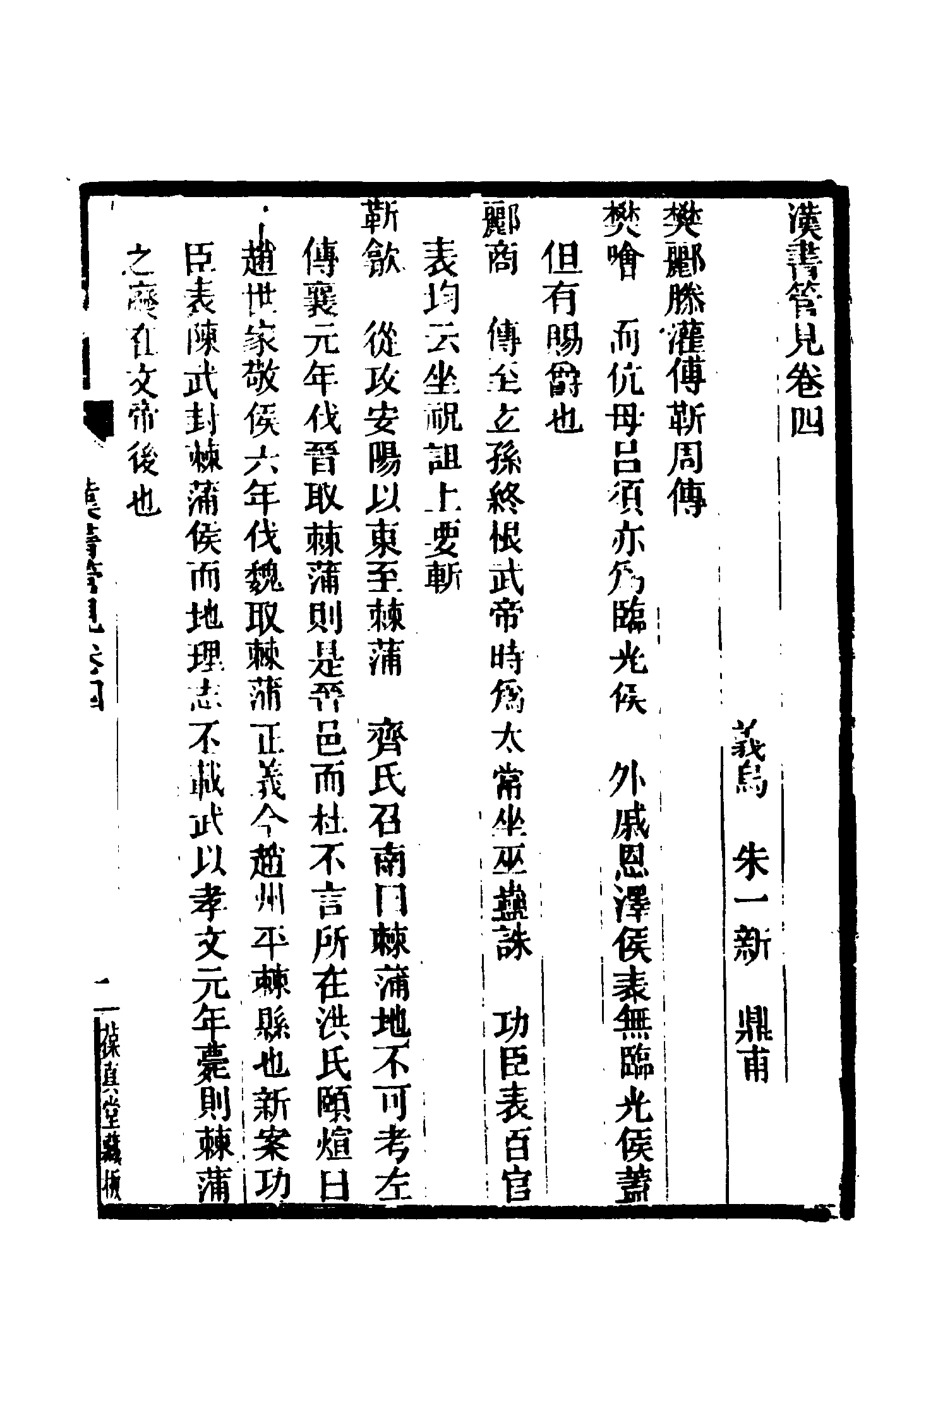 漢書管見卷四
義烏　朱一新　鼎甫
樊酈滕灌傅靳周傳
樊噲　而伉母呂須亦爲臨光侯　外戚恩澤侯表無臨光侯蓋
但有賜爵也
酈商　傳至玄孫終根武帝時爲太常坐巫蠱誅　功臣表百官
表均云坐祝詛上要斬
靳歙　從攻安陽以東至棘蒲　齊氏召南曰棘蒲地不可考左
傳襄元年伐晉取棘蒲則是晉邑而杜不言所在洪氏頤煊曰
趙世家敬侯六年伐魏取棘蒲正義今趙州平棘縣也新案功
臣表陳武封棘蒲侯而地理志不載武以孝文元年薨則棘蒲
之廢在文帝後也
漢書管見卷四
一
葆真堂藏板